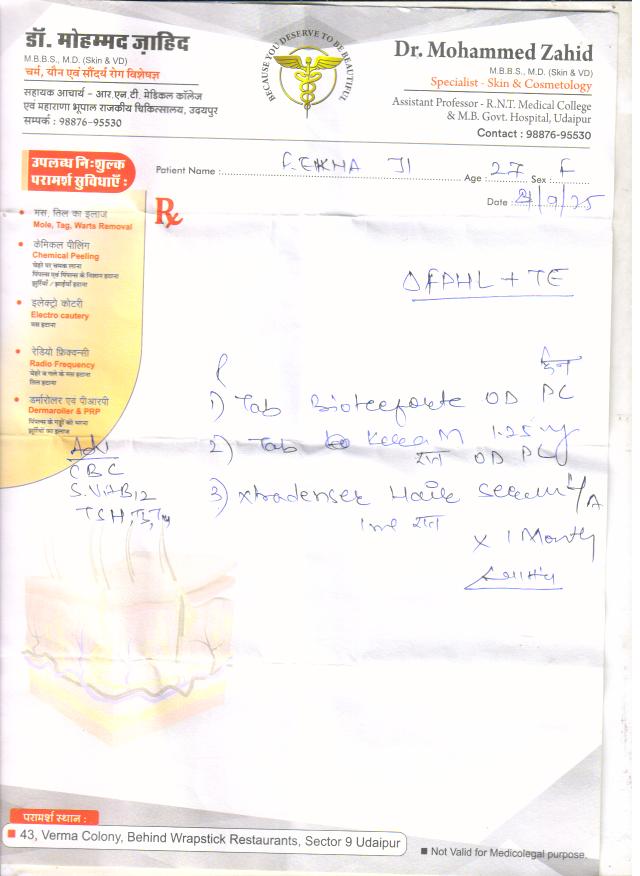 डॉ. मोहम्मद ज़ाहिद
M.B.B.S., M.D. (Skin & VD)
चर्म, यौन एवं सौंदर्य रोग विशेषज्ञ
सहायक आचार्य - आर.एन.टी. मेडिकल कॉलेज
एवं महाराणा भूपाल राजकीय चिकित्सालय, उदयपुर
सम्पर्क : 98876-95530
BECAUSE YOU DESERVE TO BE BEAUTIFUL
Dr. Mohammed Zahid
M.B.B.S., M.D. (Skin & VD)
Specialist - Skin & Cosmetology
Assistant Professor - R.N.T. Medical College
& M.B. Govt. Hospital, Udaipur
Contact : 98876-95530
Patient Name : REKHA JI Age : 27 Sex : F
Date : /9/25
उपलब्ध निःशुल्क
परामर्श सुविधाएँ :
Rx
मस, तिल का इलाज
Mole, Tag, Warts Removal
केमिकल पीलिंग
Chemical Peeling
चेहरे पर चमक लाना
पिंपल्स एवं पिंपल्स के निशान हटाना
झुर्रियाँ / झाईयाँ हटाना
इलेक्ट्रो कोटरी
Electro cautery
मस हटाना
रेडियो फ्रिक्वन्सी
Radio Frequency
चेहरे व गले के मस हटाना
तिल हटाना
डर्मारोलर एवं पीआरपी
Dermaroller & PRP
पिंपल्स के गड्ढों को भरना
झुर्रियों का इलाज
FPHL + TE
1) Tab OD PC
2) Tab M 1.25 mg
रात OD PC
3) Xtradenser Hair Serum L/A
1ml रात
x 1 Month
Adv
CBC
S. Vit B12
TSH, T3, T4
परामर्श स्थान :
43, Verma Colony, Behind Wrapstick Restaurants, Sector 9 Udaipur
Not Valid for Medicolegal purpose.